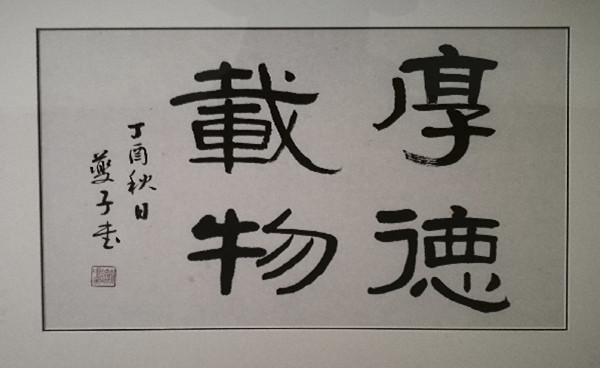 厚德
載物
丁酉秋日
夔子书